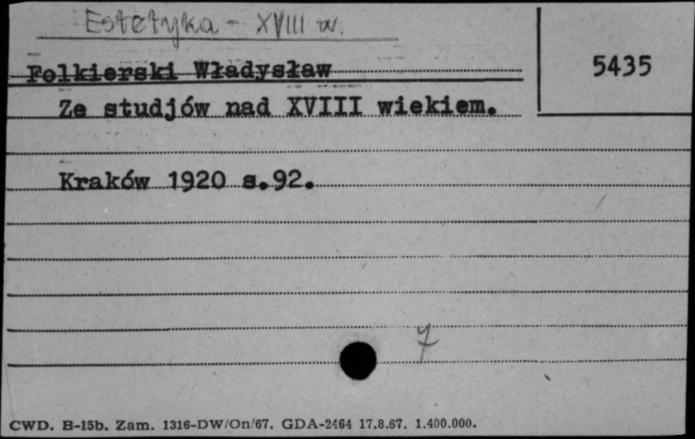 Estetyka - XVIII w.
Folkierski Władysław
5435
Ze studjów nad XVIII wiekiem.
Kraków 1920 s.92.
7
CWD. B-15b. Zam. 1316-DW/On/67. GDA-2464 17.8.67. 1.400.000.